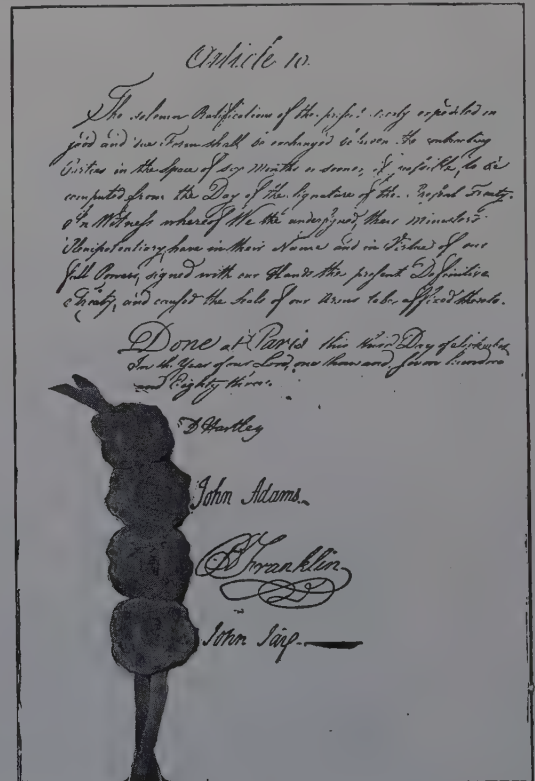 Article 10.
The solemn Ratifications of the present Treaty expedited in
good and due Form shall be exchanged between the contracting
Parties in the Space of six Months or sooner, if possible, to be
computed from the Day of the Signature of the present Treaty.
In Witness whereof We the undersigned, their Ministers
Plenipotentiary, have in their Name and in Virtue of our
full Powers, signed with our Hands the present Definitive
Treaty, and caused the Seals of our Arms to be affixed thereto.
Done at Paris this third Day of September
In the Year of our Lord, one thousand, seven hundred
and Eighty three.
D Hartley
John Adams.
B Franklin
John Jay